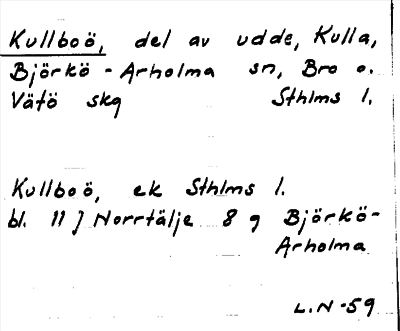 Kullboö, del av udde, Kulla,
Björkö - Arholma sn, Bro o.
Vätö skg Sthlms l.
Kullboö, ek Sthlms l.
bl. 11 J Norrtälje 8 g Björkö-
Arholma
L.N -59